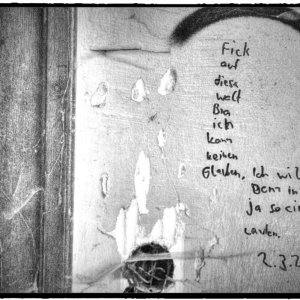 Fick
auf
diese
welt
Bra
ich
kann
keinen
Glauben, Ich wil
Dem in
ja so ei
Lauten.
2.3.2